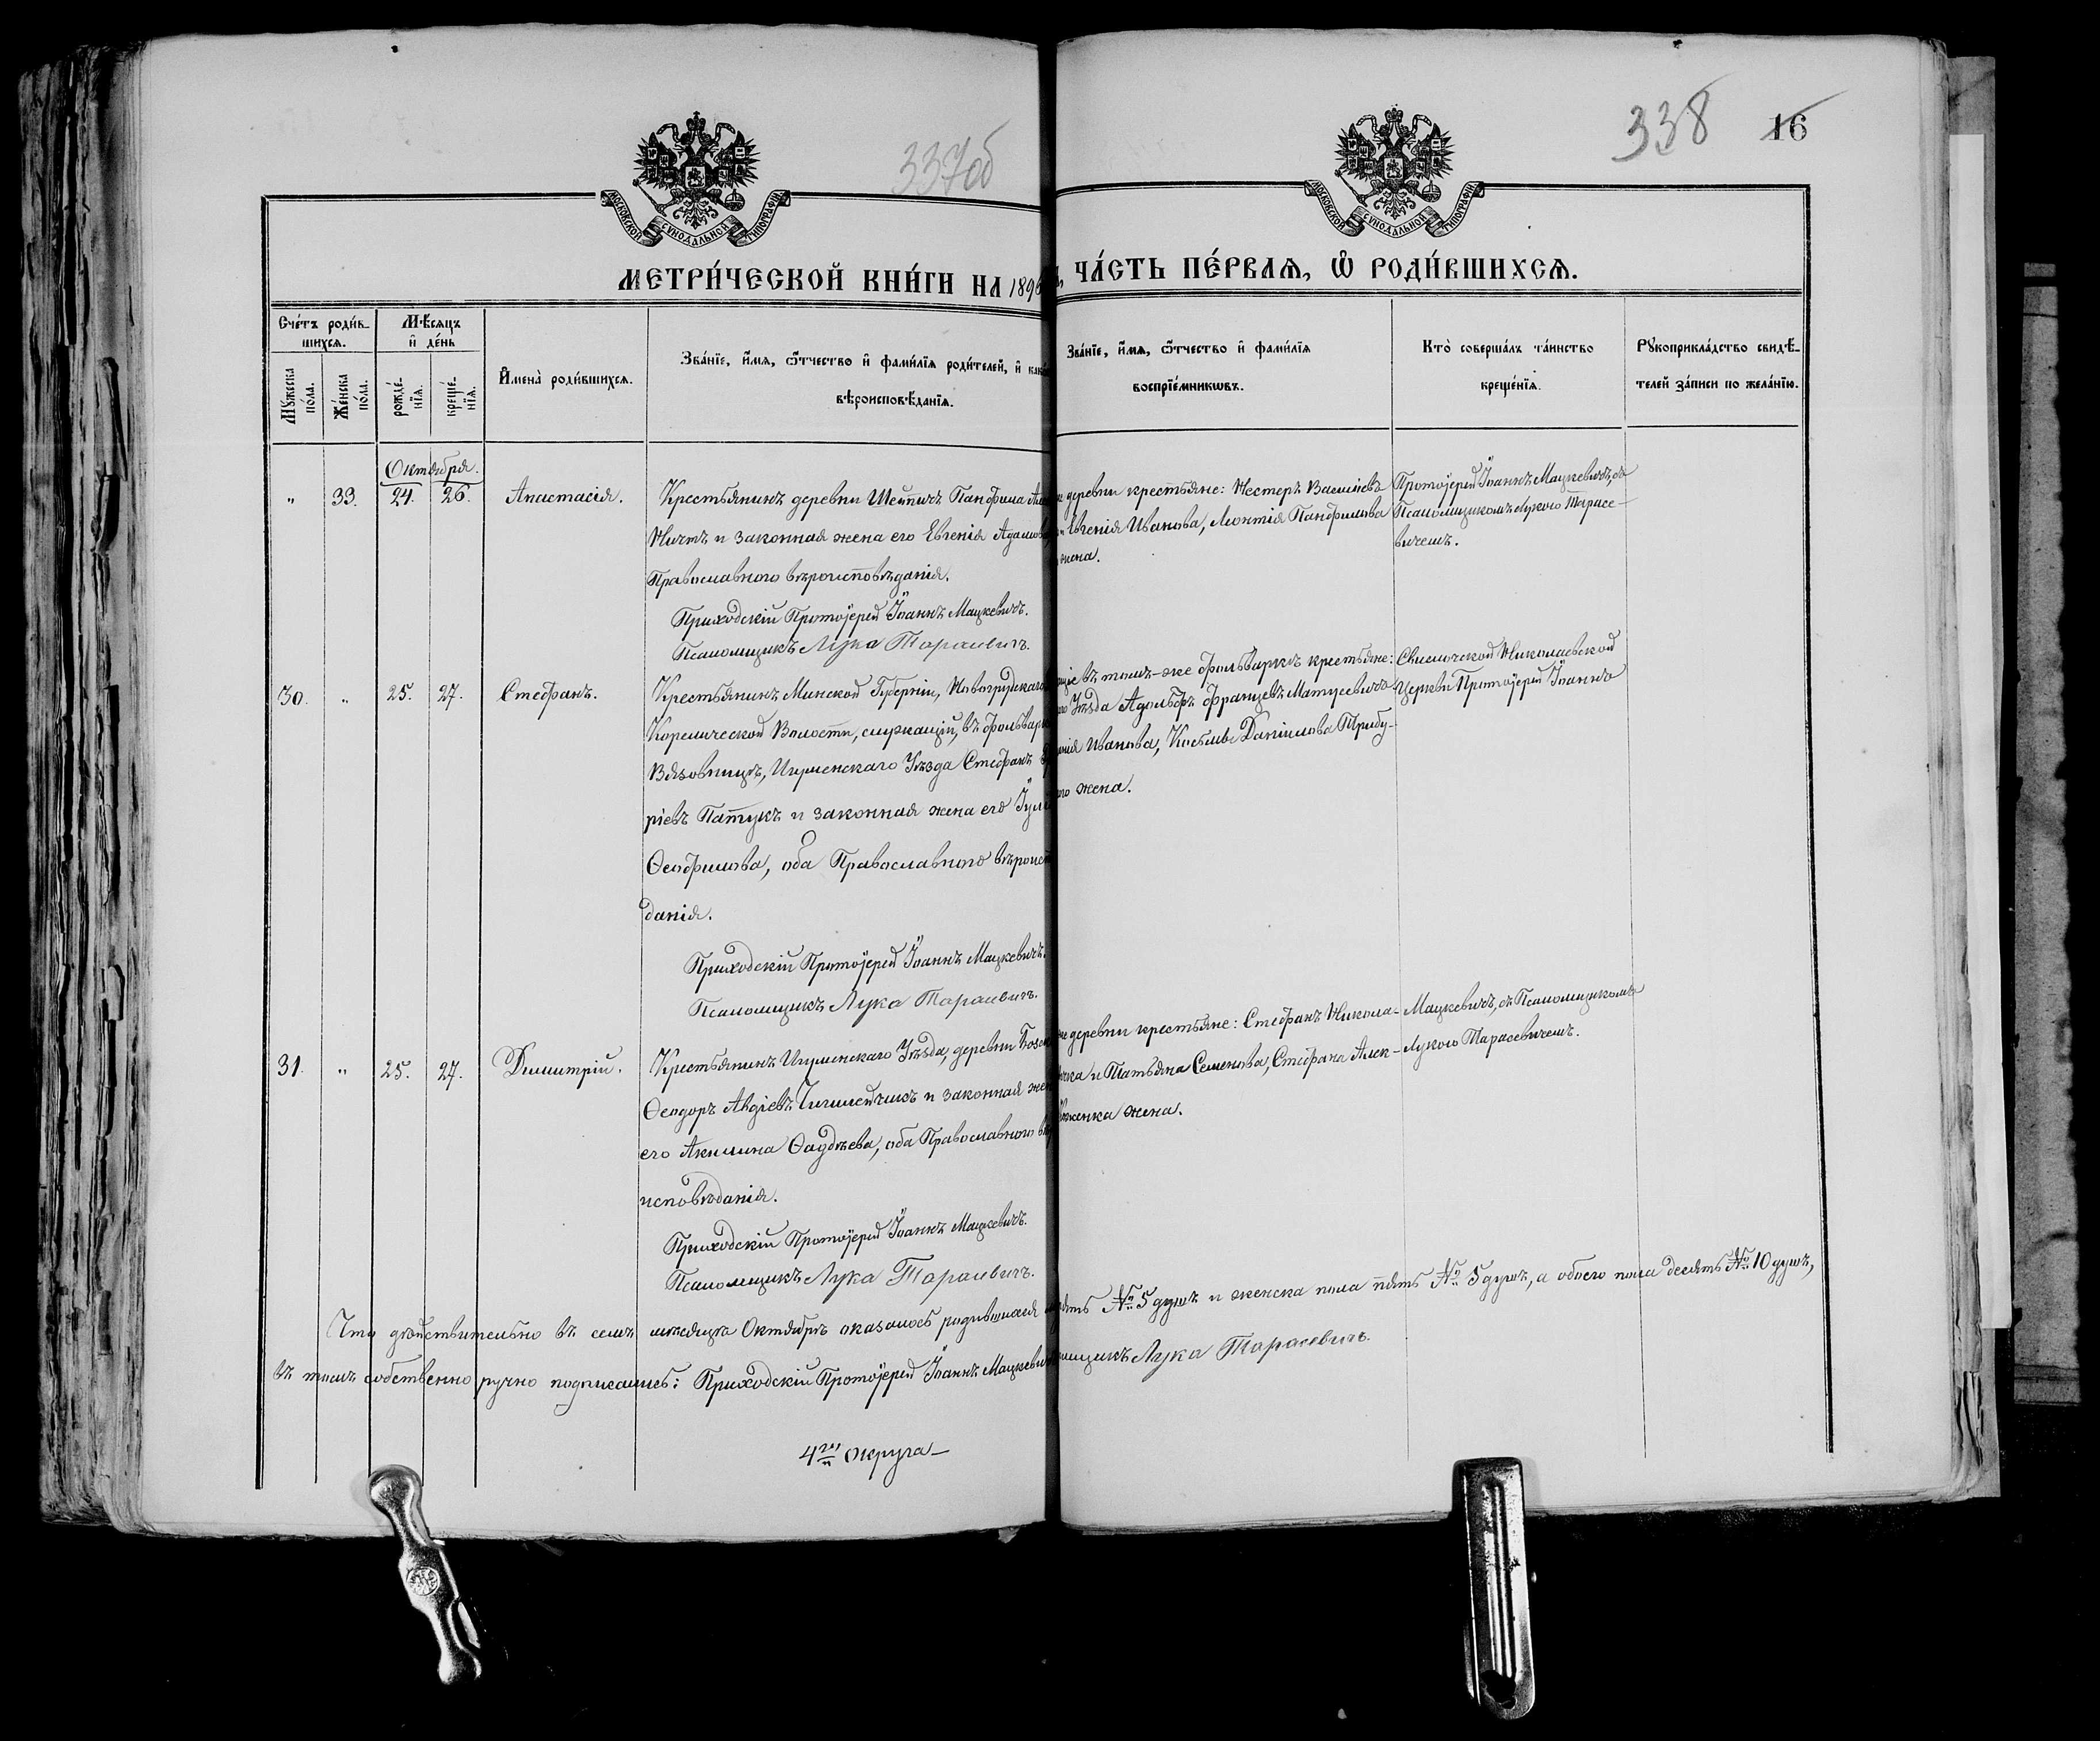 337об
338 16
МОСКОВСКОЙ СѴНОДАЛЬНОЙ ТИПОГРАФІИ
МОСКОВСКОЙ СѴНОДАЛЬНОЙ ТИПОГРАФІИ
МЕТРИ́ЧЕСКОЙ КНИ́ГИ НА 1896
ЧА́СТЬ ПЕ́РВАѦ, Ѽ РОДИ́ВШИХСѦ.
Сче́тъ роди́в-
шихсѧ.
Мꙋ́жеска по́ла.
Же́нска по́ла.
Мѣ́сѧцъ
и҆ де́нь
рожде́-
нїѧ.
креще́-
нїѧ.
И҆мена̀ роди́вшихсѧ.
Зва́нїе, и҆́мѧ, ѻ҆́тчество и҆ фами́лїѧ роди́телей, и҆
вѣроисповѣ́данїѧ.
Зва́нїе, и҆́мѧ, ѻ҆́тчество и҆ фами́лїѧ
воспрїе́мникѡвъ.
Кто̀ соверша́лъ та́инство
креще́нїѧ.
Рꙋкоприкла́дство свидѣ́-
телей за́писи по жела́нїю.
Октября.
" 33. 24. 26. Анастасія.
Крестьянинъ деревни Панфилъ
и законная жена его Евгенія Адамова,
Православнаго вѣроисповѣданія.
Приходскій Протоіерей Іоаннъ Мацкевичъ.
Псаломщикъ Лука Тарасевичъ.
деревни крестьяне: Нестеръ Васильевъ
Евгенія Иванова, Леонтія Панфилова
жена.
Протоіерей Іоаннъ Мацкевичъ, съ
Псаломщикомъ Лукою Тарасе-
вичемъ.
30. " 25. 27. Стефанъ.
Крестьянинъ Минской Губерніи, Новогрудскаго
Кореличской Волости, служащій, въ фольварк
Вязовницѣ, Игуменскаго Уѣзда Стефанъ
ріевъ Пацукъ и законная жена его
Ѳеофилова, оба Православнаго
данія.
Приходскій Протоіерей Іоаннъ Мацкевичъ.
Псаломщикъ Лука Тарасевичъ.
въ томъ-же фольваркѣ крестьяне:
Уѣзда Адольфъ Францевъ Матусевичъ
Иванова, Даніилова Трибу-
жена.
Свислочской Николаевской
Церкви Протоіерей Іоаннъ
31. " 25. 27. Димитрій.
Крестьянинъ Игуменскаго Уѣзда, деревни
Ѳеодоръ Авдіевъ и законная
его Акилина Ѳаддѣева, оба Православнаго
исповѣданія.
Приходскій Протоіерей Іоаннъ Мацкевичъ.
Псаломщикъ Лука Тарасевичъ.
деревни крестьяне: Стефанъ Никола-
и Татьяна Семенова, Стефана Алек-
жена.
Мацкевичъ, съ Псаломщикомъ
Лукою Тарасевичемъ.
Что дѣйствительно въ семъ мѣсяцѣ Октябрѣ оказалось родившихся № 5 душъ и женска пола пять № 5 душъ, а обоего пола десять № 10 душъ,
въ томъ собственно ручно подписались: Приходскій Протоіерей Іоаннъ Мацкевичъ Лука Тарасевичъ.
4го округа